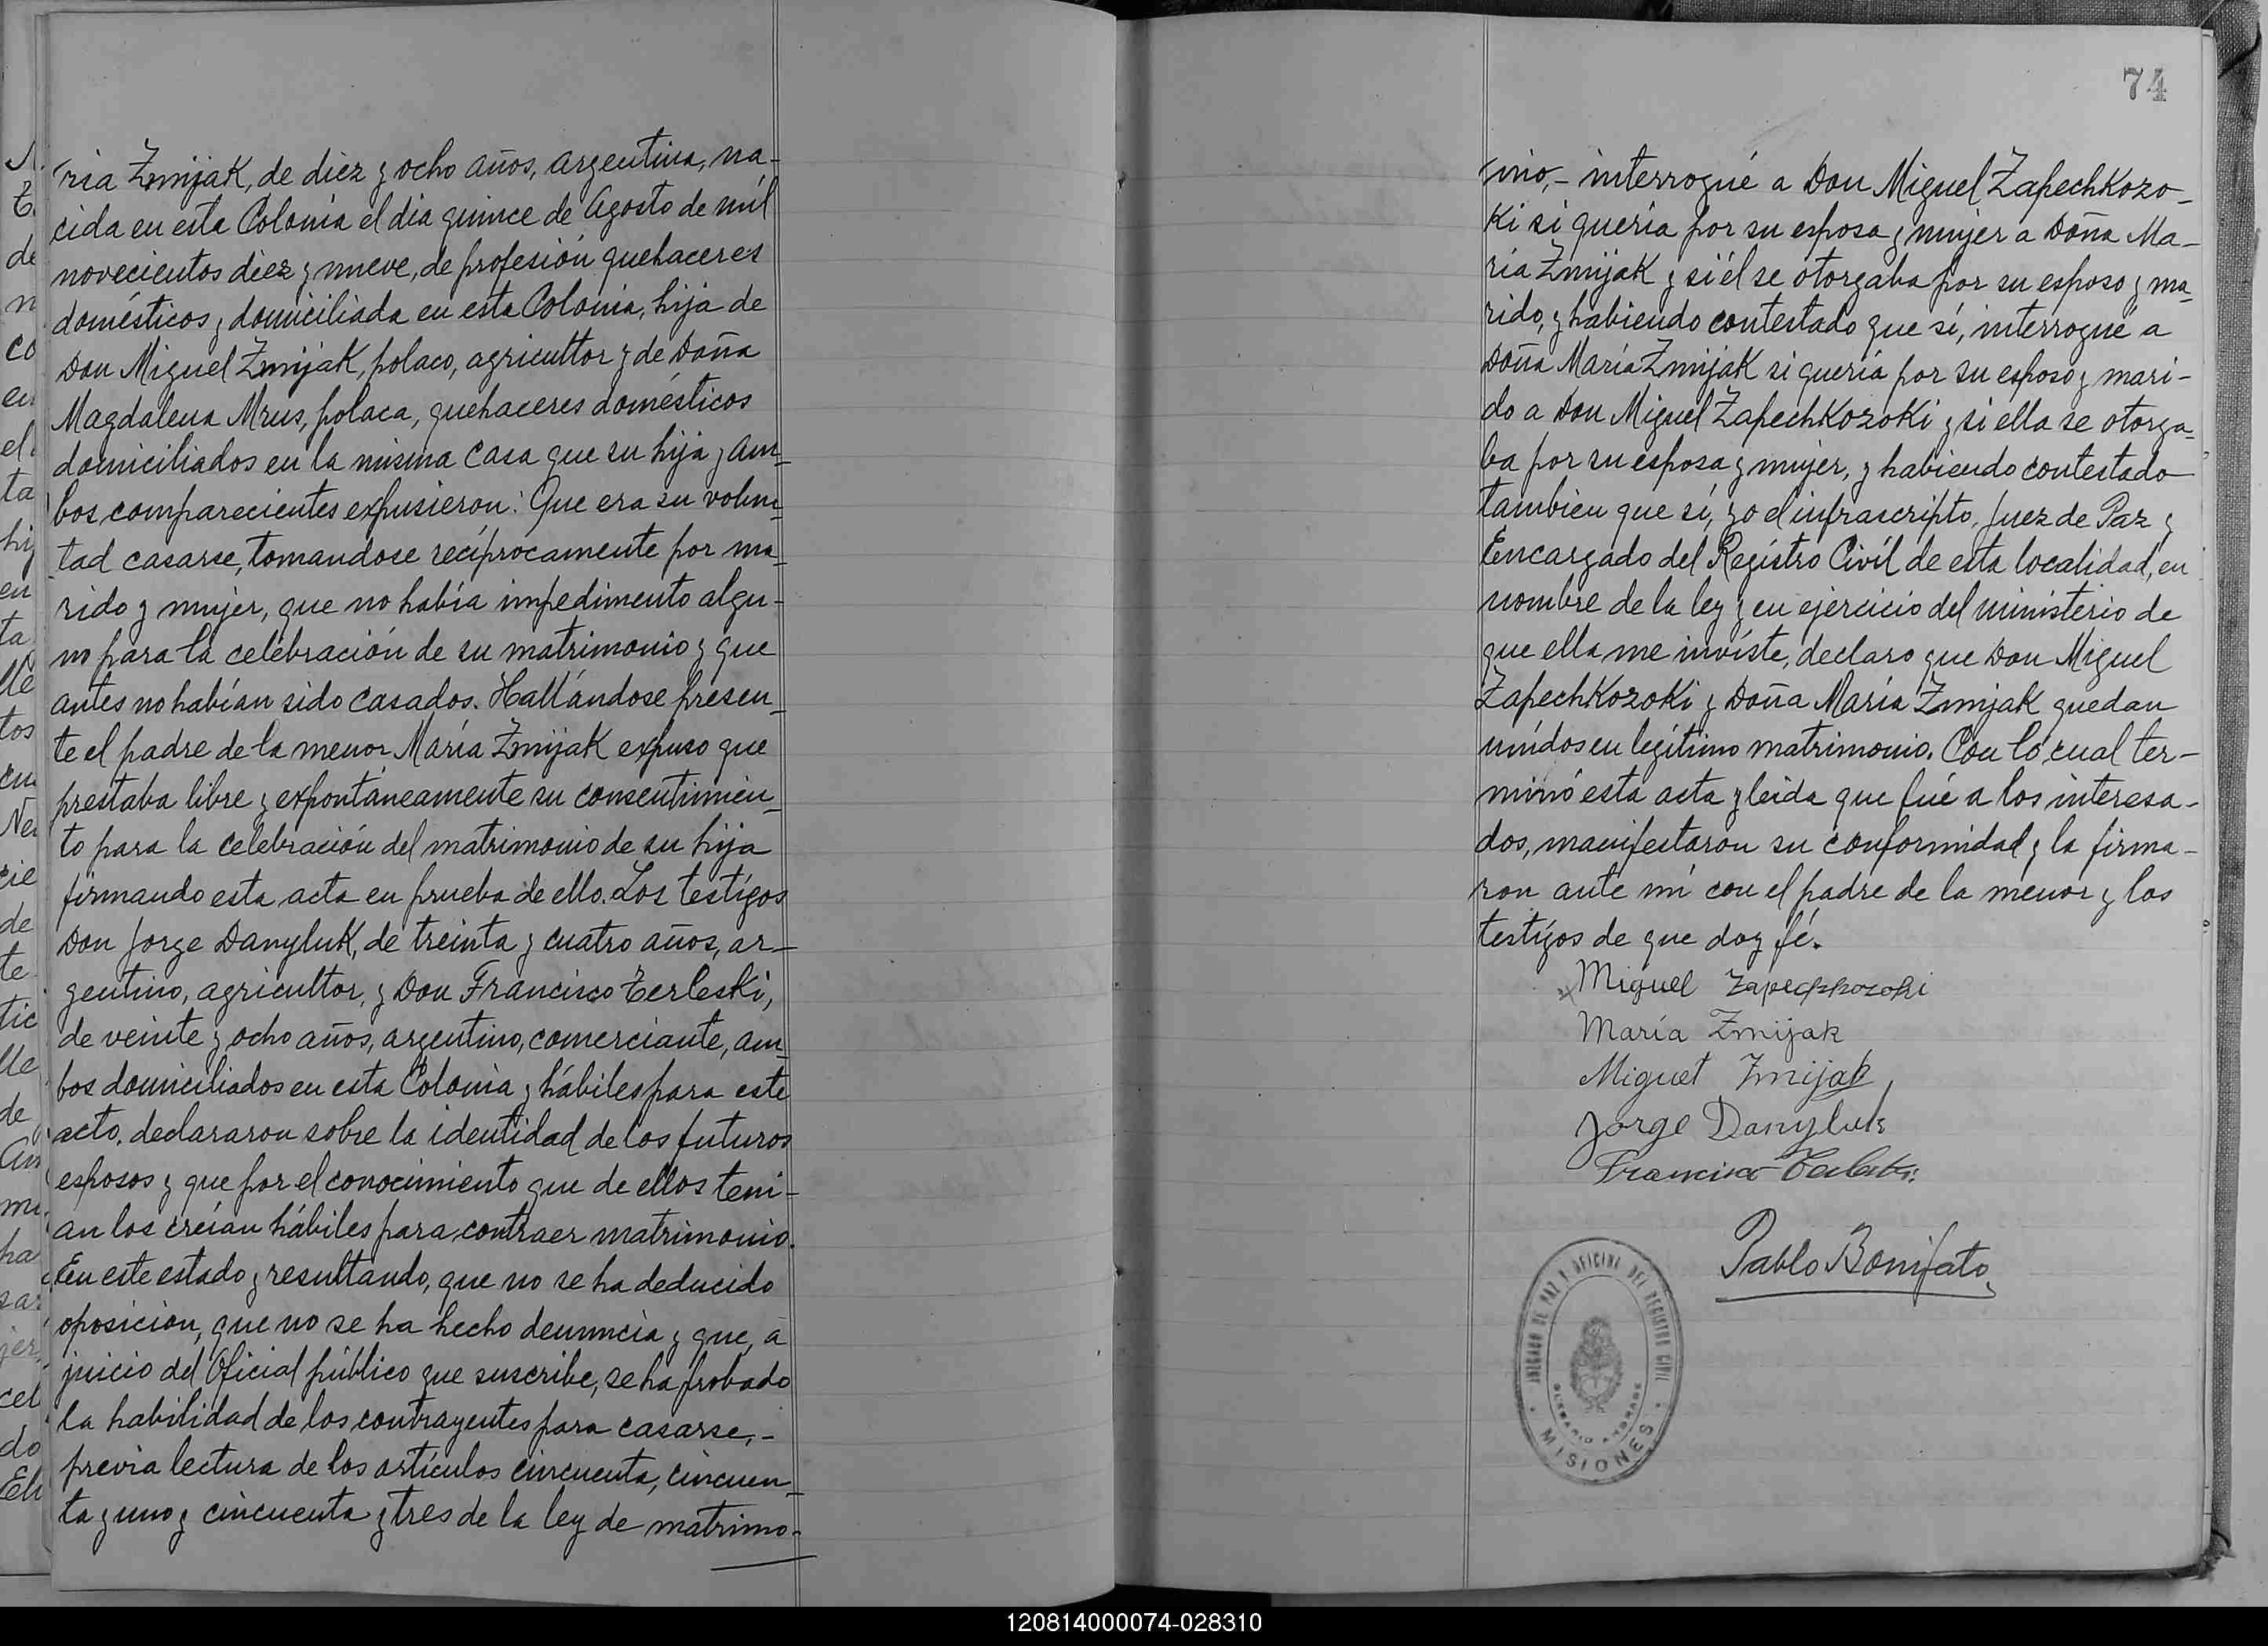 ria Zmijak, de diez y ocho años, argentina, na-
cida en esta Colonia el dia quince de Agosto de mil
novecientos diez y nueve, de profesión quehaceres
domésticos y domiciliada en esta Colonia, hija de
Don Miguel Zmijak, polaco, agricultor y de Doña
Magdalena Mrus, polaca, quehaceres domésticos
domiciliados en la misma casa que su hija y am-
bos comparecientes expusieron: Que era su volun-
tad casarse, tomandose recíprocamente por ma-
rido y mujer, que no había impedimento algu-
no para la celebración de su matrimonio y que
antes no habían sido casados. Hallándose presen-
te el padre de la menor María Zmijak expuso que
prestaba libre y expontáneamente su consentimien-
to para la celebración del matrimonio de su hija
firmando esta acta en prueba de ello. Los testígos
Don Jorge Danyluk, de treinta y cuatro años, ar-
gentino, agricultor, y Don Francisco Terleski,
de veinte y ocho años, argentino, comerciante, am-
bos domiciliados en esta Colonia y hábiles para este
acto, declararon sobre la identidad de los futuros
esposos y que por el conocimiento que de ellos tení-
an los creían hábiles para contraer matrimonio.
En este estado y resultando, que no se ha deducido
oposición, que no se ha hecho denuncia y que, á
juicio del Oficial público que suscribe, se ha probado
la habilidad de los contrayentes para casarse,-
previa lectura de los artículos cincuenta, cincuen-
ta y uno y cincuenta y tres de la ley de matrimo-
74
nio,- interrogué a Don Miguel Zapechkozo-
ki si quería por su esposa y mujer a Doña Ma-
ría Zmijak y si él se otorgaba por su esposo y ma-
rido, y habiendo contestado que sí, interrogué a
Doña María Zmijak si quería por su esposo y mari-
do a Don Miguel Zapechkozoki y si ella se otorga-
ba por su esposa y mujer, y habiendo contestado
tambien que sí, yo el infrascripto, Juez de Paz y
Encargado del Regístro Civíl de esta localidad, en
nombre de la ley y en ejercicio del ministerio de
que ella me invíste, declaro que Don Miguel
Zapechkozoki y Doña María Zmijak quedan
unídos en legítimo matrimonio. Con lo cual ter-
minó esta acta y leída que fué a los interesa-
dos, manifestaron su conformidad y la firma-
ron ante mí con el padre de la menor y los
testígos de que doy fé.
Miguel Zapechkozoki
María Zmijak
Miguel Zmijak
Jorge Danyluk
Francisco Terleski
Pablo Bonifato
JUZGADO DE PAZ Y OFICINA DEL REGISTRO CIVIL
MISIONES
120814000074-028310